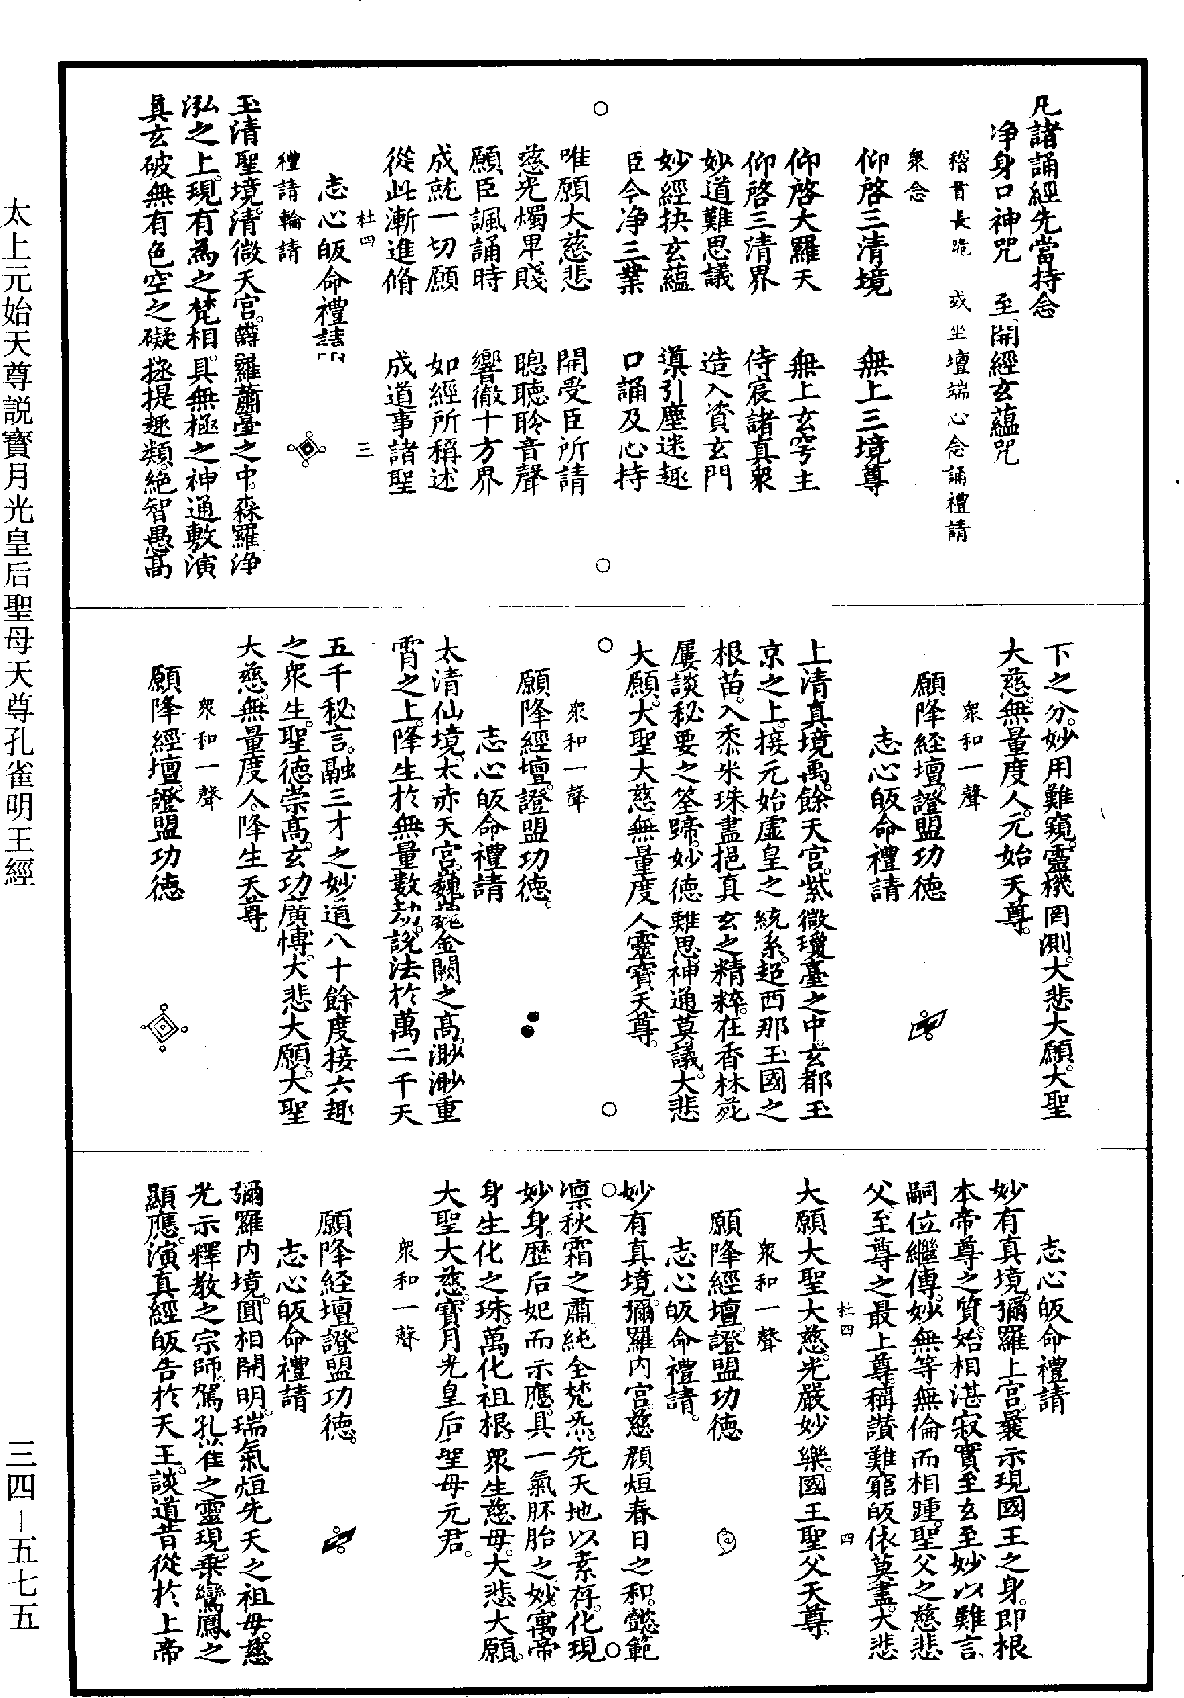 凡諸誦經先當持念
淨身口神咒　至開經玄蘊咒
稽首長跪　或坐壇端心念誦禮請
衆念
仰啓三清境　無上三境尊
仰啓大羅天　無上玄穹主
仰啓三清界　侍宸諸真衆
妙道難思議　造入資玄門
妙經抉玄蘊　滇引塵迷趣
臣今淨三業　口誦及心持
唯願大慈悲　開受臣所請
慈光燭畀賤　聰聽聆音聲
願臣諷誦時　響徹十方界
成就一切願　如經所稱述
從此漸進脩　成道事諸聖
杜四　三
志心皈命禮請
禮請輪請
玉清聖境。清微天宮。鬱羅蕭臺之中。森羅淨
泓之上。現有為之梵相。具無極之神通。敷演
真玄。破無有色空之礙。拯提趣類。絶智愚高
下之分。妙用難窺。靈機罔測。大悲大願。大聖
大慈。無量度人。元始天尊。
衆和一聲
願降經壇。證盟功德
志心皈命禮請
上清真境。禹餘天宮。紫微瓊臺之中。玄都玉
京之上。接元始虛皇之統系。超西那玉國之
根苗。入黍米珠。盡挹真玄之精粹。在香林苑
屢談秘要之筌蹄。妙德難思。神通莫議。大悲
大願。大聖大慈。無量度人。靈寶天尊。
衆和一聲
願降經壇。證盟功德。
志心皈命禮請
太清仙境。太赤天宮。巍巍金闕之高。渺渺重
霄之上。降生於無量數劫。說法於萬二千天
五千秘言。融三才之妙道。八十餘度。接六趣
之衆生。聖德崇高。玄功廣愽。大悲大願。大聖
大慈。無量度人。降生天尊。
衆和一聲
願降經壇。證盟功德
志心皈命禮請
妙有真境。彌羅上宮。曩示現國王之身。即根
本帝尊之質。始相湛寂。實至玄至妙以難言
嗣位繼傳。妙無等無倫而相踵。聖父之慈悲
父。至尊之最上尊。稱讃難窮。皈依莫盡。大悲
杜四　四
大願。大聖大慈。光嚴妙樂。國王聖父天尊
衆和一聲
願降經壇。證盟功德
志心皈命禮請。
妙有真境。彌羅內宮。慈顏烜春日之和。懿範
凛秋霜之肅。純全梵炁。先天地以素存。化現
妙身。歷后妃而示應。具一氣胚胎之妙。寓帝
身生化之珠。萬化祖根。衆生慈母。大悲大願。
大聖大慈。寶月光皇后。聖母元君。
衆和一聲
願降經壇。證盟功德。
志心皈命禮請
彌羅內境。圓相開明。瑞氣烜先天之祖母。慈
光示釋教之宗師。駕孔雀之靈現。乘鸞鳳之
顯應。演真經皈告於天王。談道昔從於上帝
太上元始天尊説寶月光皇后聖母天尊孔雀明王經
三四—五七五